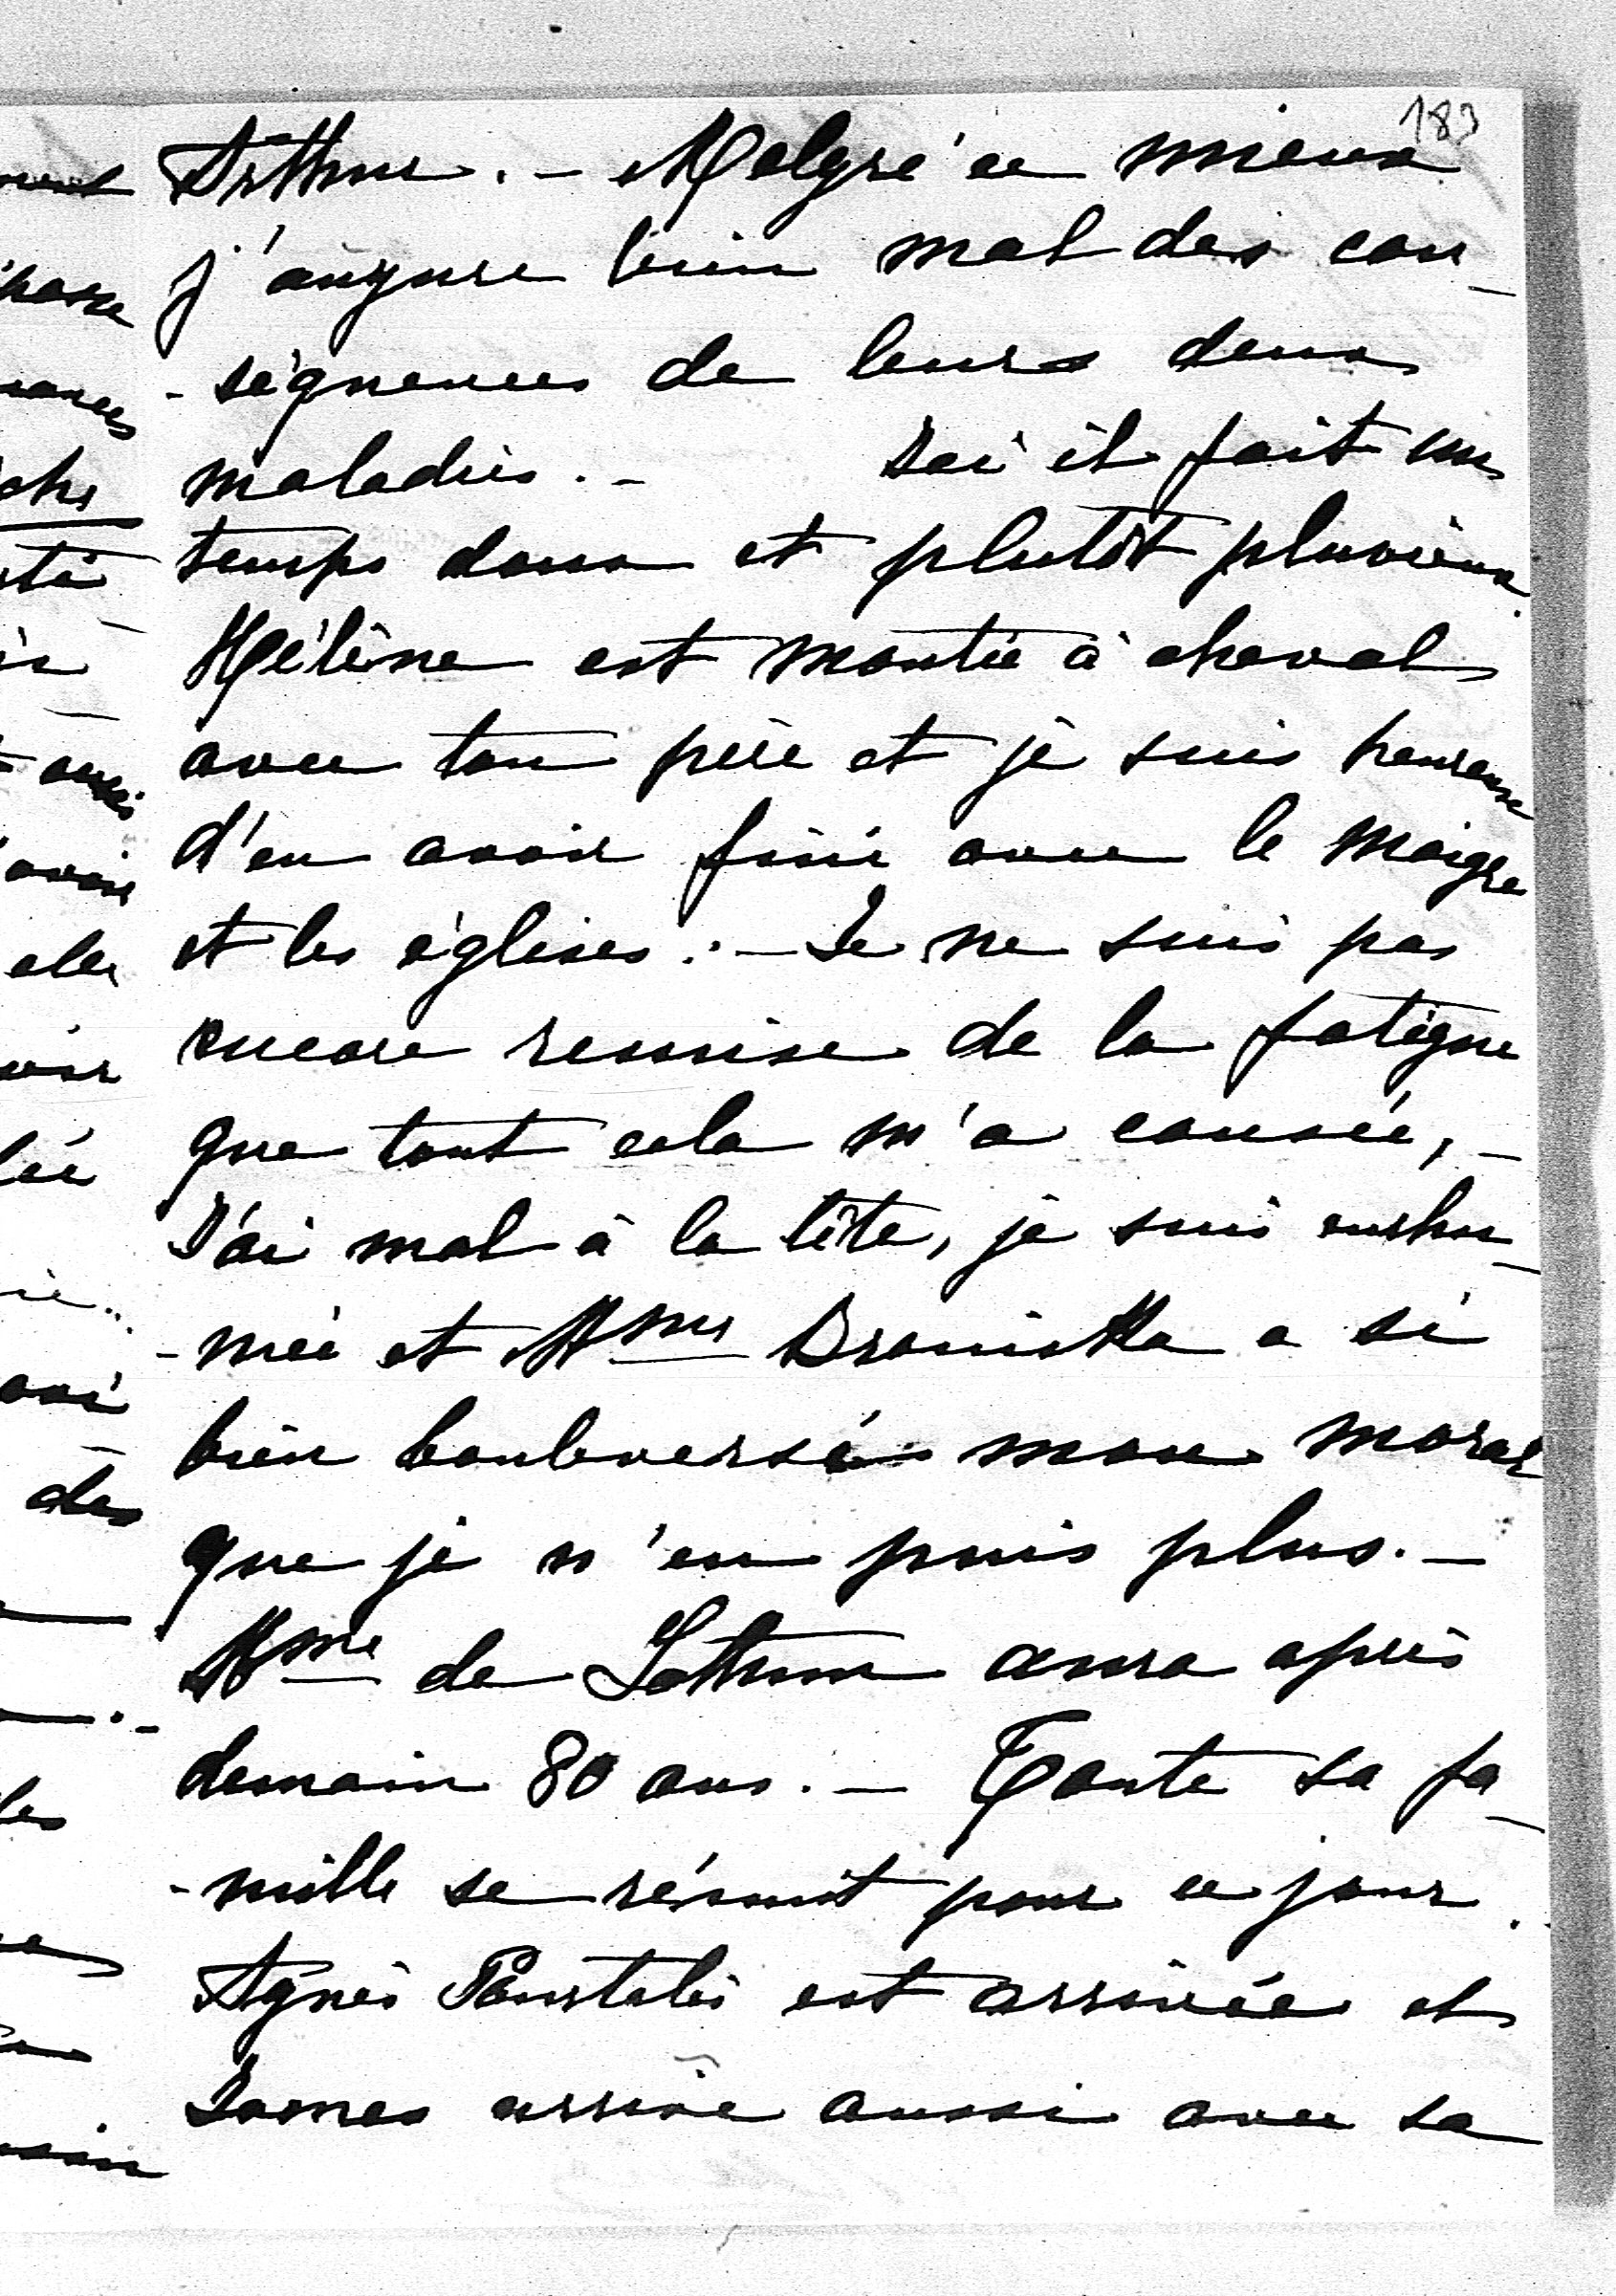 183
Arthur. – Malgré ce mieux
j'augure bien mal des con-
-séquences de leurs deux
maladies. – Ici il fait un
temps doux et plutôt pluvieux.
Hélène est montée à cheval
avec ton père et je suis heureuse
d'en avoir fini avec le maigre
et les églises. – Je ne suis pas
encore remise de la fatigue
que tout cela m'a causée, –
J'ai mal à la tête, je suis enrhu-
-mée et Mme a si
bien bouleversé mon moral
que je n'en puis plus. –
Mme de Lottum aura après
demain 80 ans. – Toute sa fa-
-mille se réunit pour ce jour.
Agnès Pourtalès est arrivée et
James arrive aussi avec sa